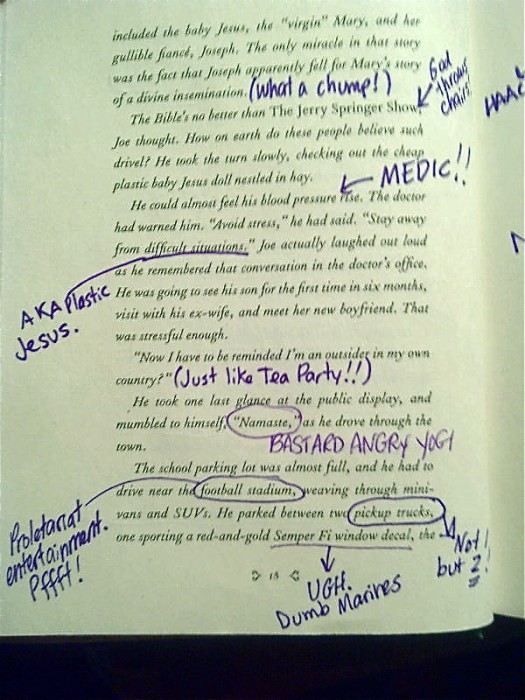 included the baby Jesus, the "virgin" Mary, and her
gullible fiancé, Joseph. The only miracle in that story
was the fact that Joseph apparently fell for Mary's story
of a divine insemination. (What a chump!)
God
throws
chairs
HAA
The Bible's no better than The Jerry Springer Show,
Joe thought. How on earth do these people believe such
drivel? He took the turn slowly, checking out the cheap
plastic baby Jesus doll nestled in hay.
MEDIC!!
He could almost feel his blood pressure rise. The doctor
had warned him. "Avoid stress," he had said. "Stay away
from difficult situations." Joe actually laughed out loud
as he remembered that conversation in the doctor's office.
AKA Plastic
Jesus.
He was going to see his son for the first time in six months,
visit with his ex-wife, and meet her new boyfriend. That
was stressful enough.
"Now I have to be reminded I'm an outsider in my own
country?" (Just like Tea Party!!)
He took one last glance at the public display, and
mumbled to himself, "Namaste," as he drove through the
town.
BASTARD ANGRY YOGI
The school parking lot was almost full, and he had to
drive near the football stadium, weaving through mini-
vans and SUVs. He parked between two pickup trucks,
one sporting a red-and-gold Semper Fi window decal, the
Proletariat
entertainment.
Pffft!
Not 1
but 2!
15
UGH.
Dumb Marines